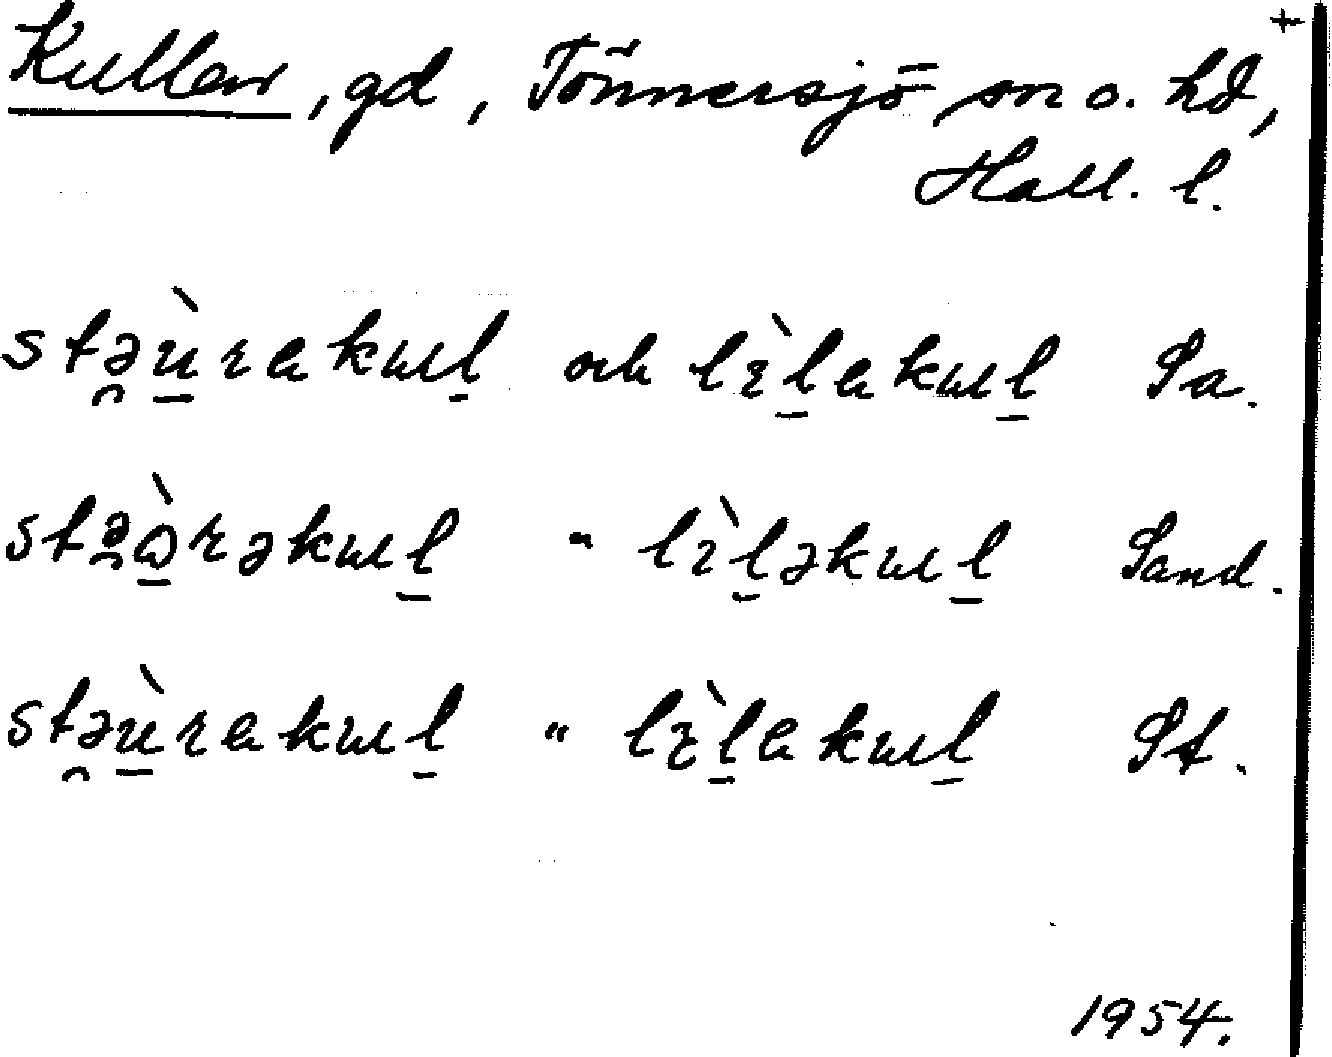 +
Kullen, gd, Tönnersjö sn o. hd,
Hall. l.
stə̯ùrakul̠ och lìl̠akul̠ Sa.
stə̯òrəkul̠ " lìl̠əkul̠ Sand.
stə̯ùrakul̠ " lìl̠akul̠ St.
1954.